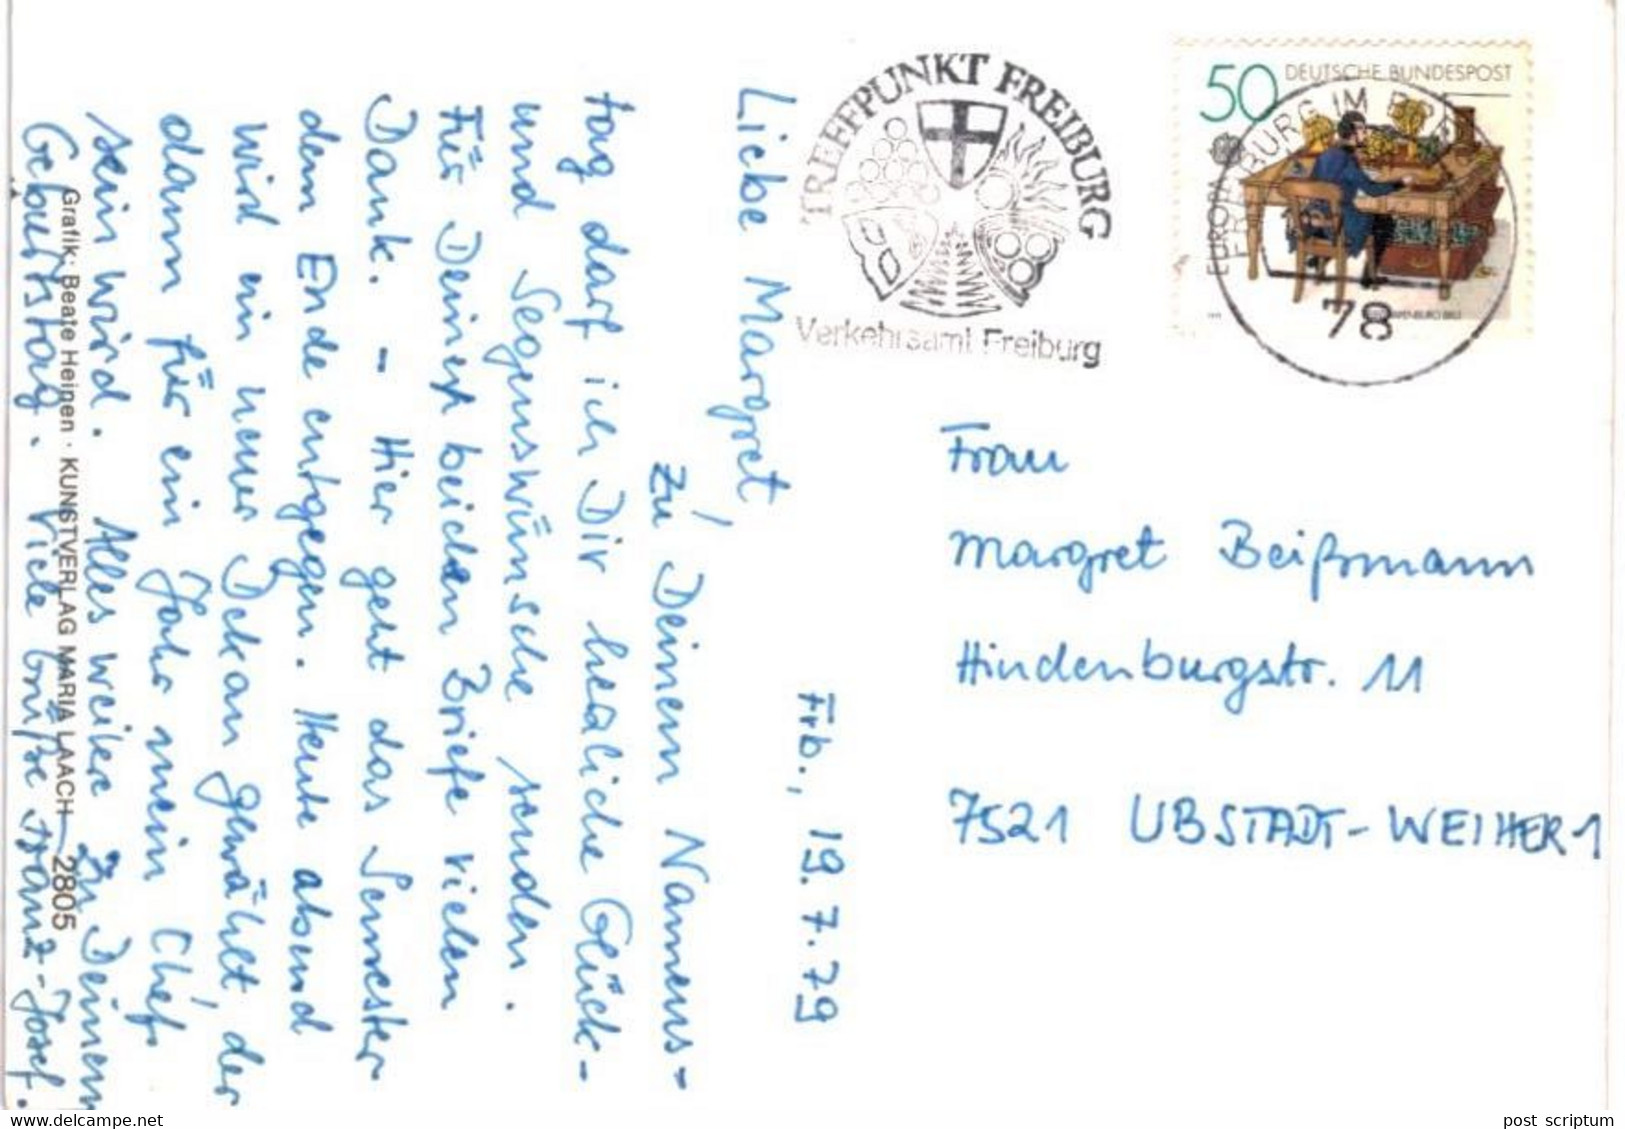 Frb., 19.7.79
Liebe Margret,
Zu Deinem Namens-
tag darf ich Dir herzliche Glück-
und Segenswünsche senden.
Für Deinen beiden Briefe vielen
Dank. - Hier geht das Semester
dem Ende entgegen. Heute abend
wird ein neuer Dekan gewählt, der
dann für ein Jahr mein Chef
sein wird. Alles weitere zu Deinem
Geburtstag. Viele Grüße Franz-Josef.
Grafik: Beate Heinen · KUNSTVERLAG MARIA LAACH 2805
TREFFPUNKT FREIBURG
Verkehrsamt Freiburg
50 DEUTSCHE BUNDESPOST
EUROPA
FREIBURG IM
78
Frau
Margret Beißmann
Hindenburgstr. 11
7521 UBSTADT-WEIHER 1
delcampe.net
post_scriptum